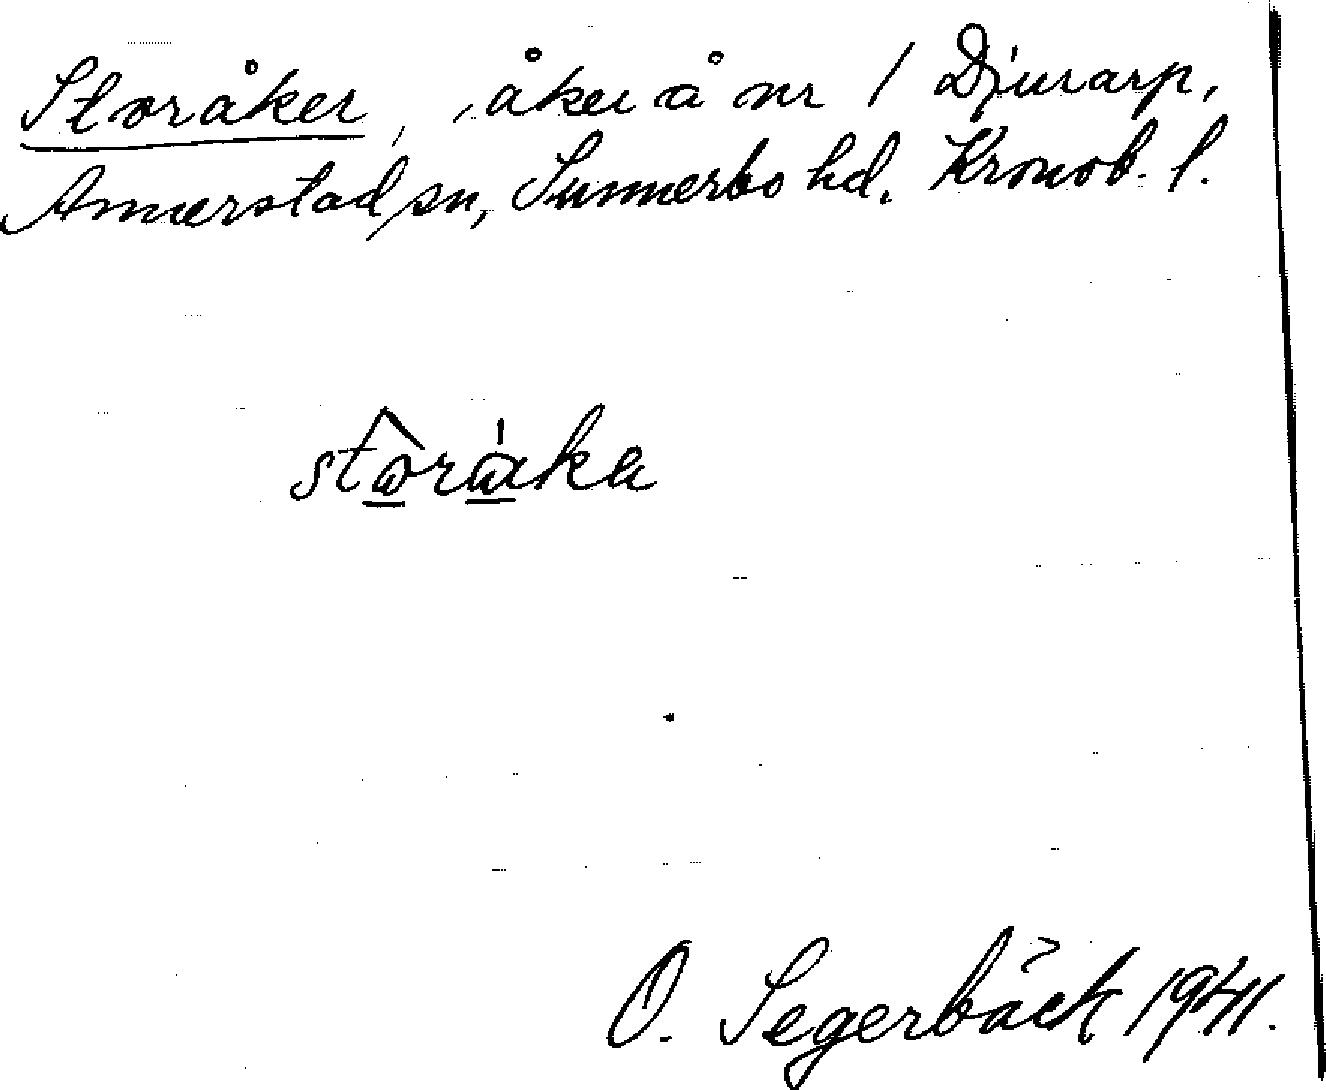 Storåker, åker å nr 1 Djurarp,
Annerstad sn, Sunnerbo hd. Kronob. l.
storåka
O. Segerbäck 1941.